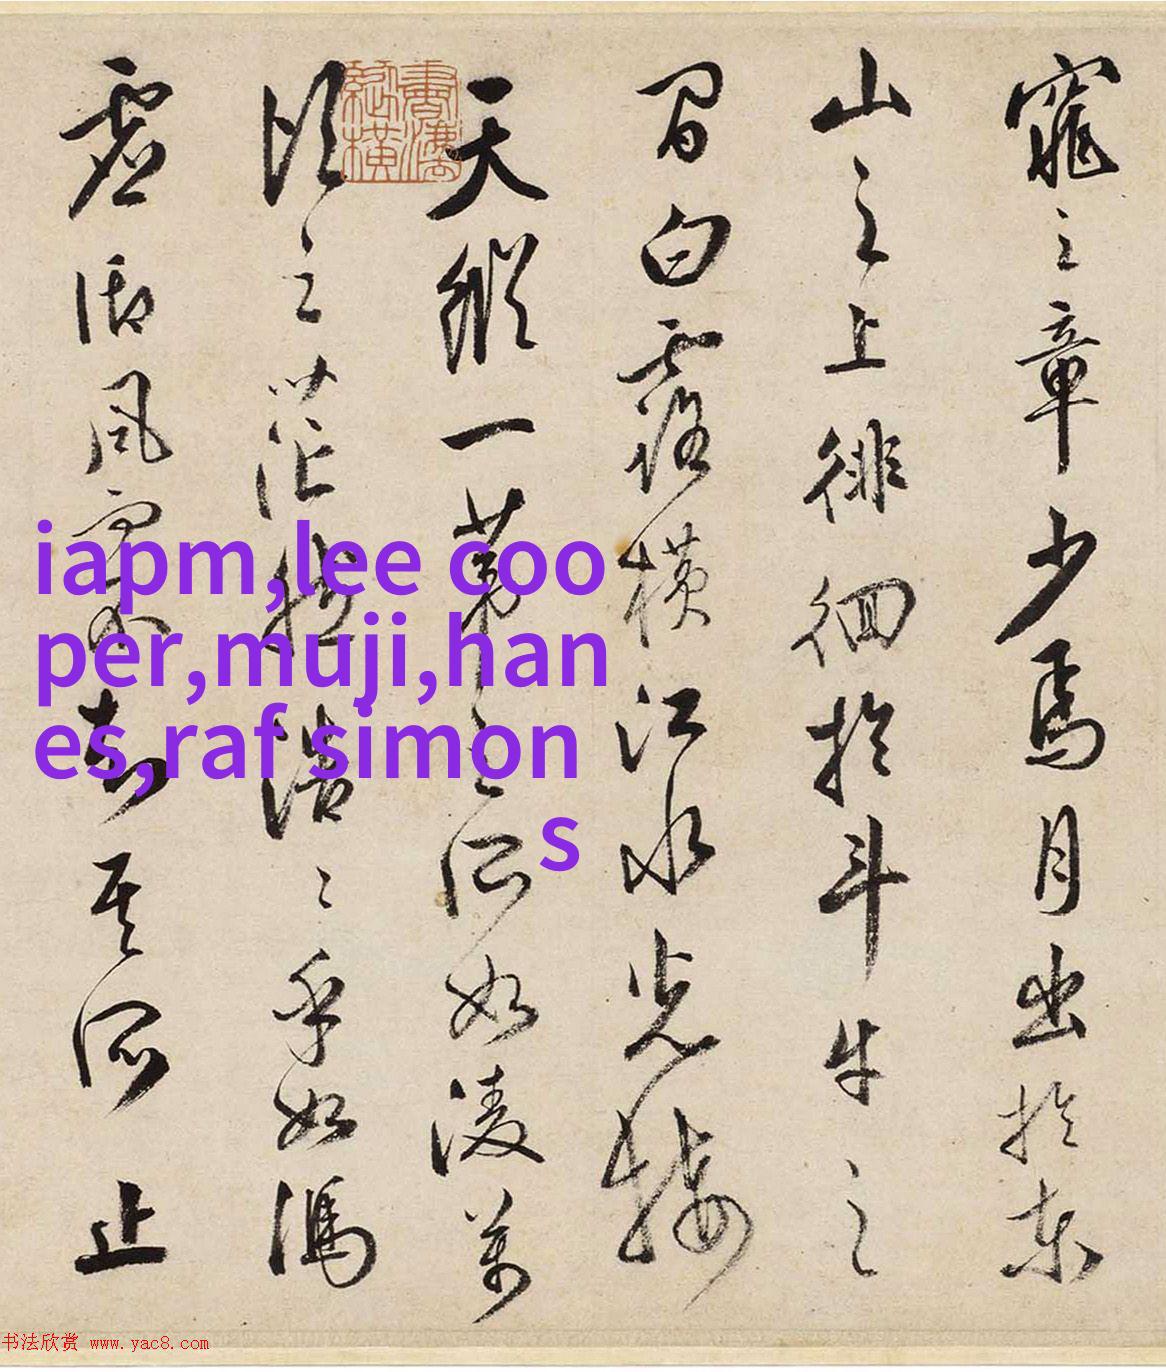 窕之章少焉月出於東
山之上徘徊於斗牛之
間白露橫江水光接
天縱一葦之所如淩萬
頃之茫然浩〻乎如馮
虛御風而不知其所止
iapm,lee coo
per,muji,han
es,raf simon
s
书法欣赏 www.yac8.com